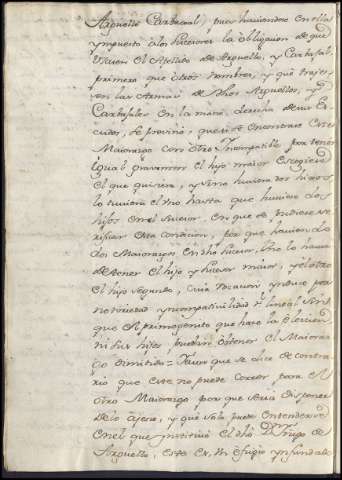 Arguello Carbajal, pues haviendose en ellas
ympuesto a los Sucesores la obligacion de que
usasen el Apellido de Arguello, y Carbajal,
primero que otros nombres, y que trajesen
en las Armas de dhos Arguellos, y
Carbajales en la mano derecha de sus Es
cudos, se previno, que si se encontrase este
Maiorazgo con otro Incompatible por tener
igual gravamen el hijo maior escogiese
el que quisiera, y si no huviera dos hijos
lo tuviera el uno hasta que huviese dos
hijos en el Sucesor, en que se pudiese ve
rificar esta condicion, por que haviendo
dos Maiorazgos en dho Sucesor, uno lo havia
de tener el hijo maior, y el otro
el hijo segundo, cuia vocacion yndujo por
notoriedad yncompativilidad Rl lineal sin
que el primogenito que hace la eleccion
ni sus hijos, puedan obtener el Maioraz
go dimitido = Y aunque se dice de contra
rio que este no puede correr para el
otro Maiorazgo por que seria disponer
de lo ajeno, y que solo puede entenderse
en el que instituió el dho Dn Diego de
Arguello, esto es, un efugio ynfundado